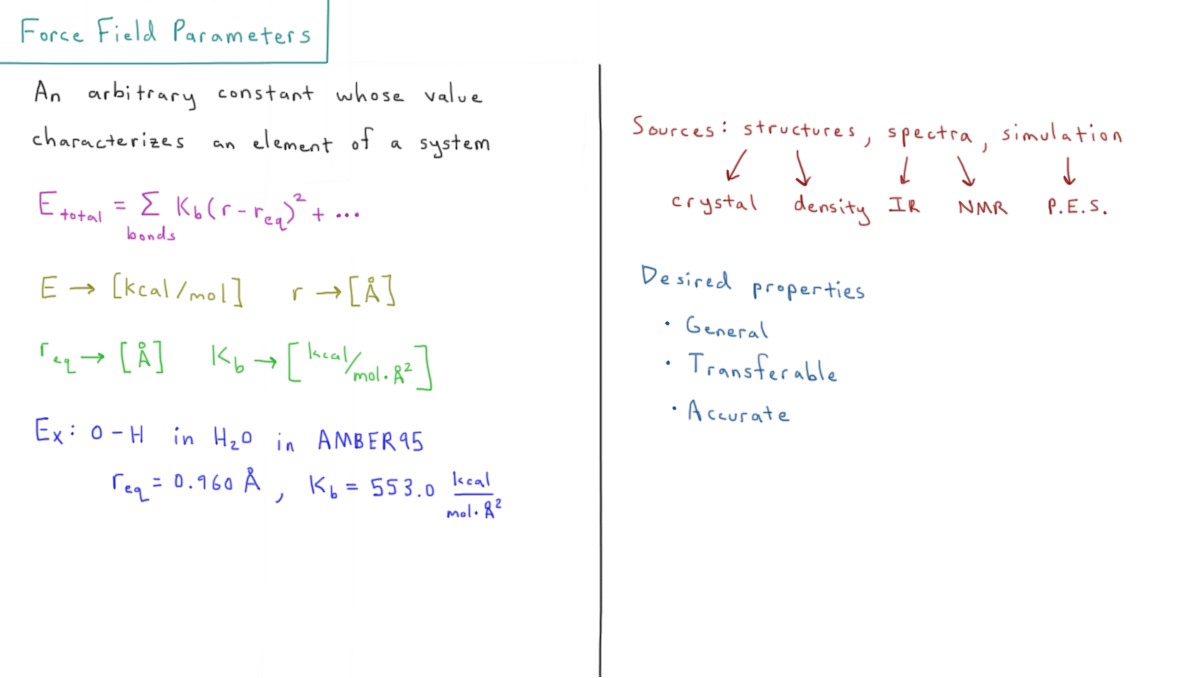 Force Field Parameters
An arbitrary constant whose value
characterizes an element of a system
E_total = Σ_bonds K_b(r-r_eq)² + ...
E → [kcal/mol] r → [Å]
r_eq → [Å] K_b → [kcal/mol·Å²]
Ex: O-H in H₂O in AMBER95
r_eq = 0.960 Å, K_b = 553.0 kcal/mol·Å²
Sources: structures, spectra, simulation
↙ ↘ ↓ ↘ ↓
crystal density IR NMR P.E.S.
Desired properties
• General
• Transferable
• Accurate